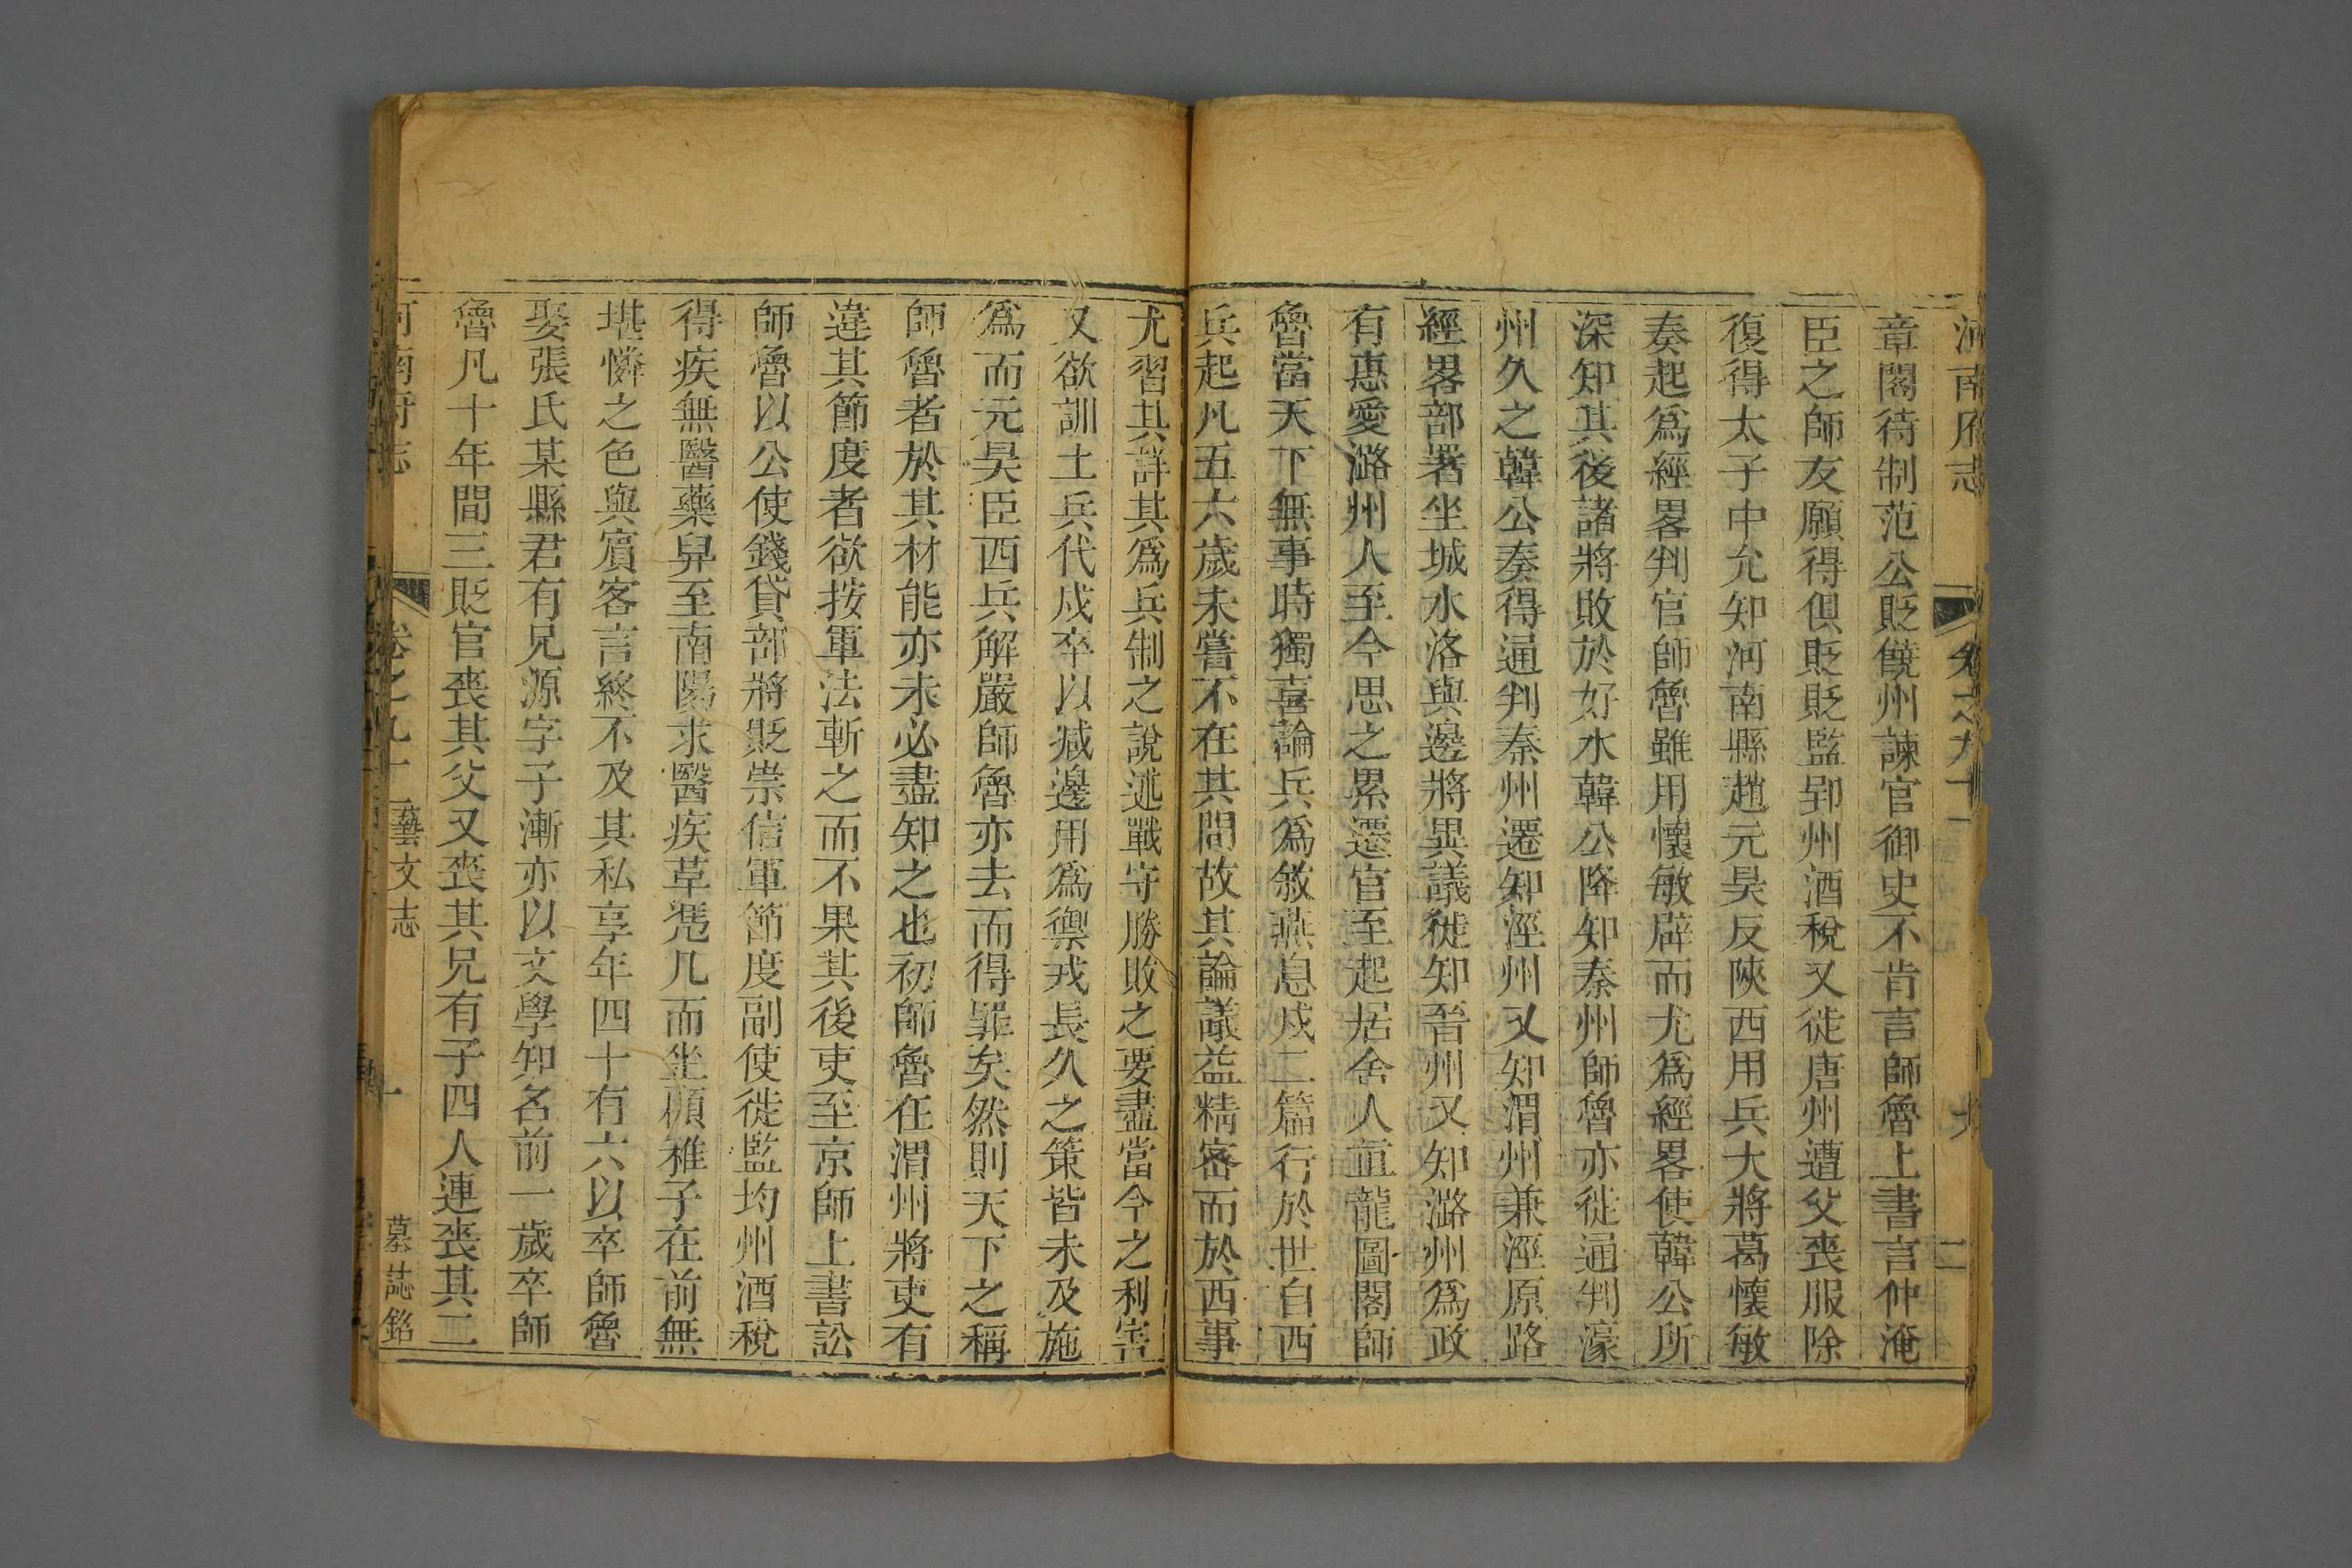 河南府志
章閣待制范公貶饒州諫官御史不肯言師魯上書言仲淹
臣之師友願得俱貶貶監郢州酒稅又徙唐州遭父喪服除
復得太子中允知河南縣趙元昊反陝西用兵大將葛懷敏
奏起爲經畧判官師魯雖用懷敏辟而尤爲經畧使韓公所
深知其後諸將敗於好水韓公降知秦州師魯亦徙通判濠
州久之韓公奏得通判秦州遷知涇州又知渭州兼涇原路
經畧部署坐城水洛與邊將異議徙知晉州又知潞州爲政
有惠愛潞州人至今思之累遷官至起居舍人直龍圖閣師
魯當天下無事時獨喜論兵爲敘燕息戍二篇行於世自西
兵起凡五六歲未嘗不在其間故其論議益精密而於西事
尤習其詳其爲兵制之說述戰守勝敗之要盡當今之利害
又欲訓土兵代戍卒以減邊用爲禦戎長久之策皆未及施
爲而元昊臣西兵解嚴師魯亦去而得罪矣然則天下之稱
師魯者於其材能亦未必盡知之也初師魯在渭州將吏有
違其節度者欲按軍法斬之而不果其後吏至京師上書訟
師魯以公使錢貸部將貶崇信軍節度副使徙監均州酒稅
得疾無醫藥舁至南陽求醫疾革凭几而坐顧稚子在前無
堪憐之色與賓客言終不及其私享年四十有六以卒師魯
娶張氏某縣君有兄源字子漸亦以文學知名前一歲卒師
魯凡十年間三貶官喪其父又喪其兄有子四人連喪其二
河南府志 卷之九十 藝文志 墓誌銘